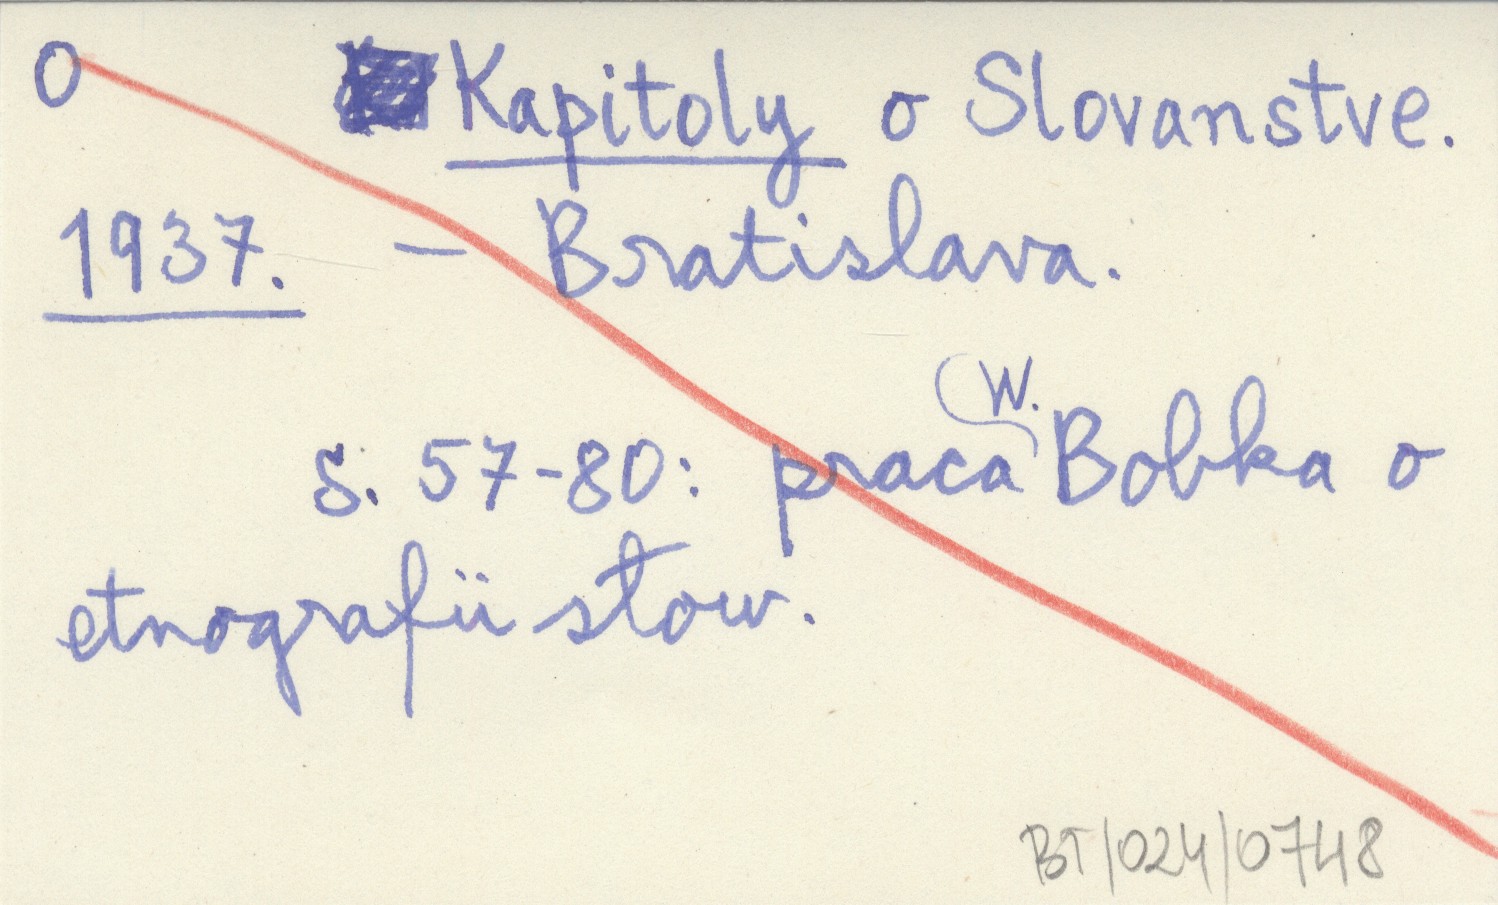 O Kapitoly o Slovanstve.
1937. – Bratislava.
W.
s. 57-80: praca Bobka o
etnografii słow.
BT/024/0748